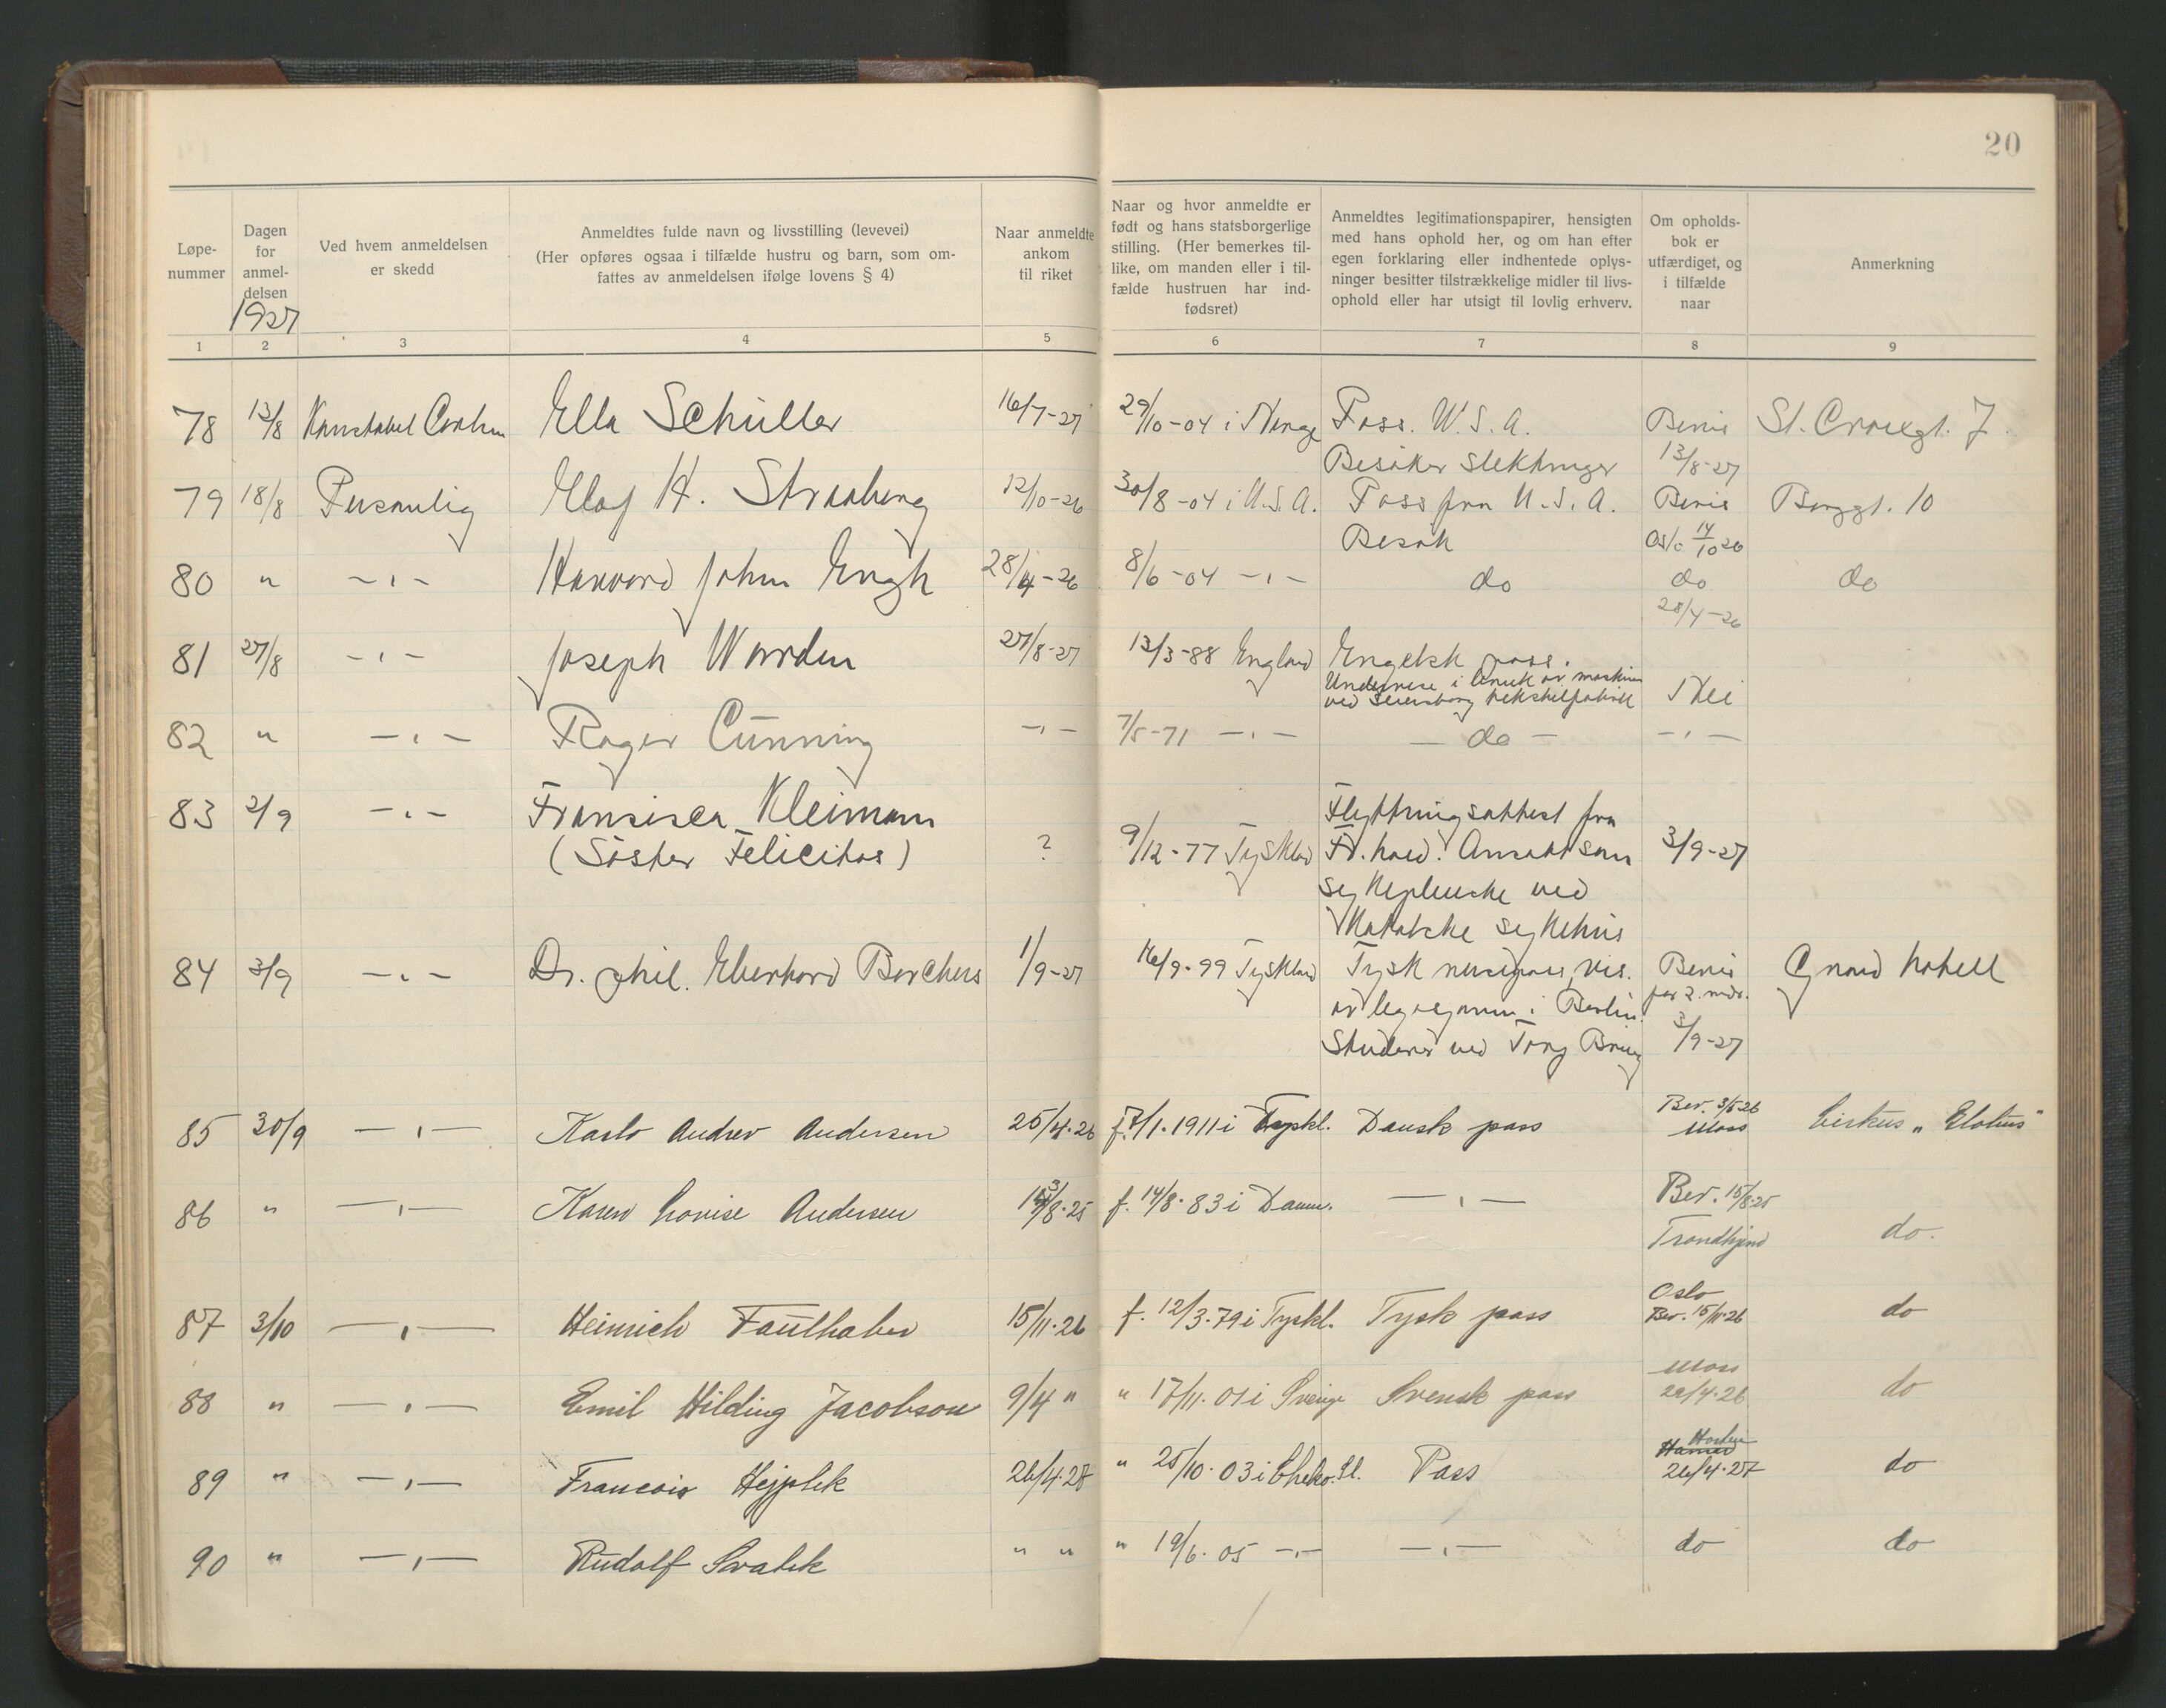 20
Løpe-
nummer
Dagen
for
anmel-
delsen
1927
Ved hvem anmeldelsen
er skedd
Anmeldtes fulde navn og livsstilling (levevei)
(Her opføres ogsaa i tilfælde hustru og barn, som om-
fattes av anmeldelsen ifølge lovens § 4)
Naar anmeldte
ankom
til riket
Naar og hvor anmeldte er
født og hans statsborgerlige
stilling. (Her bemerkes til-
like, om manden eller i til-
fælde hustruen har ind-
fødsret)
Anmeldtes legitimationspapirer, hensigten
med hans ophold her, og om han efter
egen forklaring eller indhentede oplys-
ninger besitter tilstrækkelige midler til livs-
ophold eller har utsigt til lovlig erhverv.
Om opholds-
bok er
utfærdiget, og
i tilfælde
naar
Anmerkning
1 2 3 4 5 6 7 8 9
78 13/8 Konstabel Ella Schuller 16/7-27 29/10-04 i Norge Pass. U.S.A. Bevis St. Croixgt. 7
Besøker slektninger 13/8-27
79 18/8 Personlig Olaf H. Straaberg 12/10-26 30/8-04 i U.S.A. Pass fra U.S.A. Bevis Borggt. 10
Besøk Oslo 14/10 26
80 " -,- Haavard John Engh 28/4-26 8/6-04 -,- do do do
28/4-26
81 27/8 -,- Joseph Worden 27/8-27 13/3-88 England Engelsk pass.
Undervise i bruk av maskiner
ved tekstilfabrikk Nei
82 " -,- Roger Cunning -,- 7/5-71 -,- - do - -,-
83 2/9 -,- Fransisca Kleimann Flyttningsattest fra
(Søster Felicitas) ? 9/12-77 Tyskland Fr.hald. Ansatt som 3/9-27
sykepleierske ved
Katolske sykehus
84 3/9 -,- Dr. phil. Eberhard Borchers 1/9-27 16/9-99 Tyskland Tysk reisepass, vis. Bevis Grand hotell
av legasjonen i Berlin. for 2 mdr.
Studerer ved Torp Brug 3/9-27
85 30/9 -,- Karlo Andrev Andersen 25/4-26 f. 7/1.1911 i Tyskl. Dansk pass Bev. 3/5 26 Cirkus "Elotus"
Moss
86 " -,- Karen Lovise Andersen 13/8-25 f. 14/8.83 i Danm. -,- Bev. 15/8-25
Trondhjem do.
87 3/10 -,- Heinrich Faulhaber 15/11-26 f. 12/3.79 i Tyskl. Tysk pass Oslo do
Bev. 15/11-26
88 " -,- Emil Hilding Jacobson 9/4 " " 17/11.01 i Sverige Svensk pass Moss do
22/4-26
89 " -,- Francois Hejplik 26/4-27 " 25/10.03 i Cheko.Sl. Pass Horten do
26/4-27
90 " -,- Rudolf Svatek " " " 19/6.05 -,- -,- do do